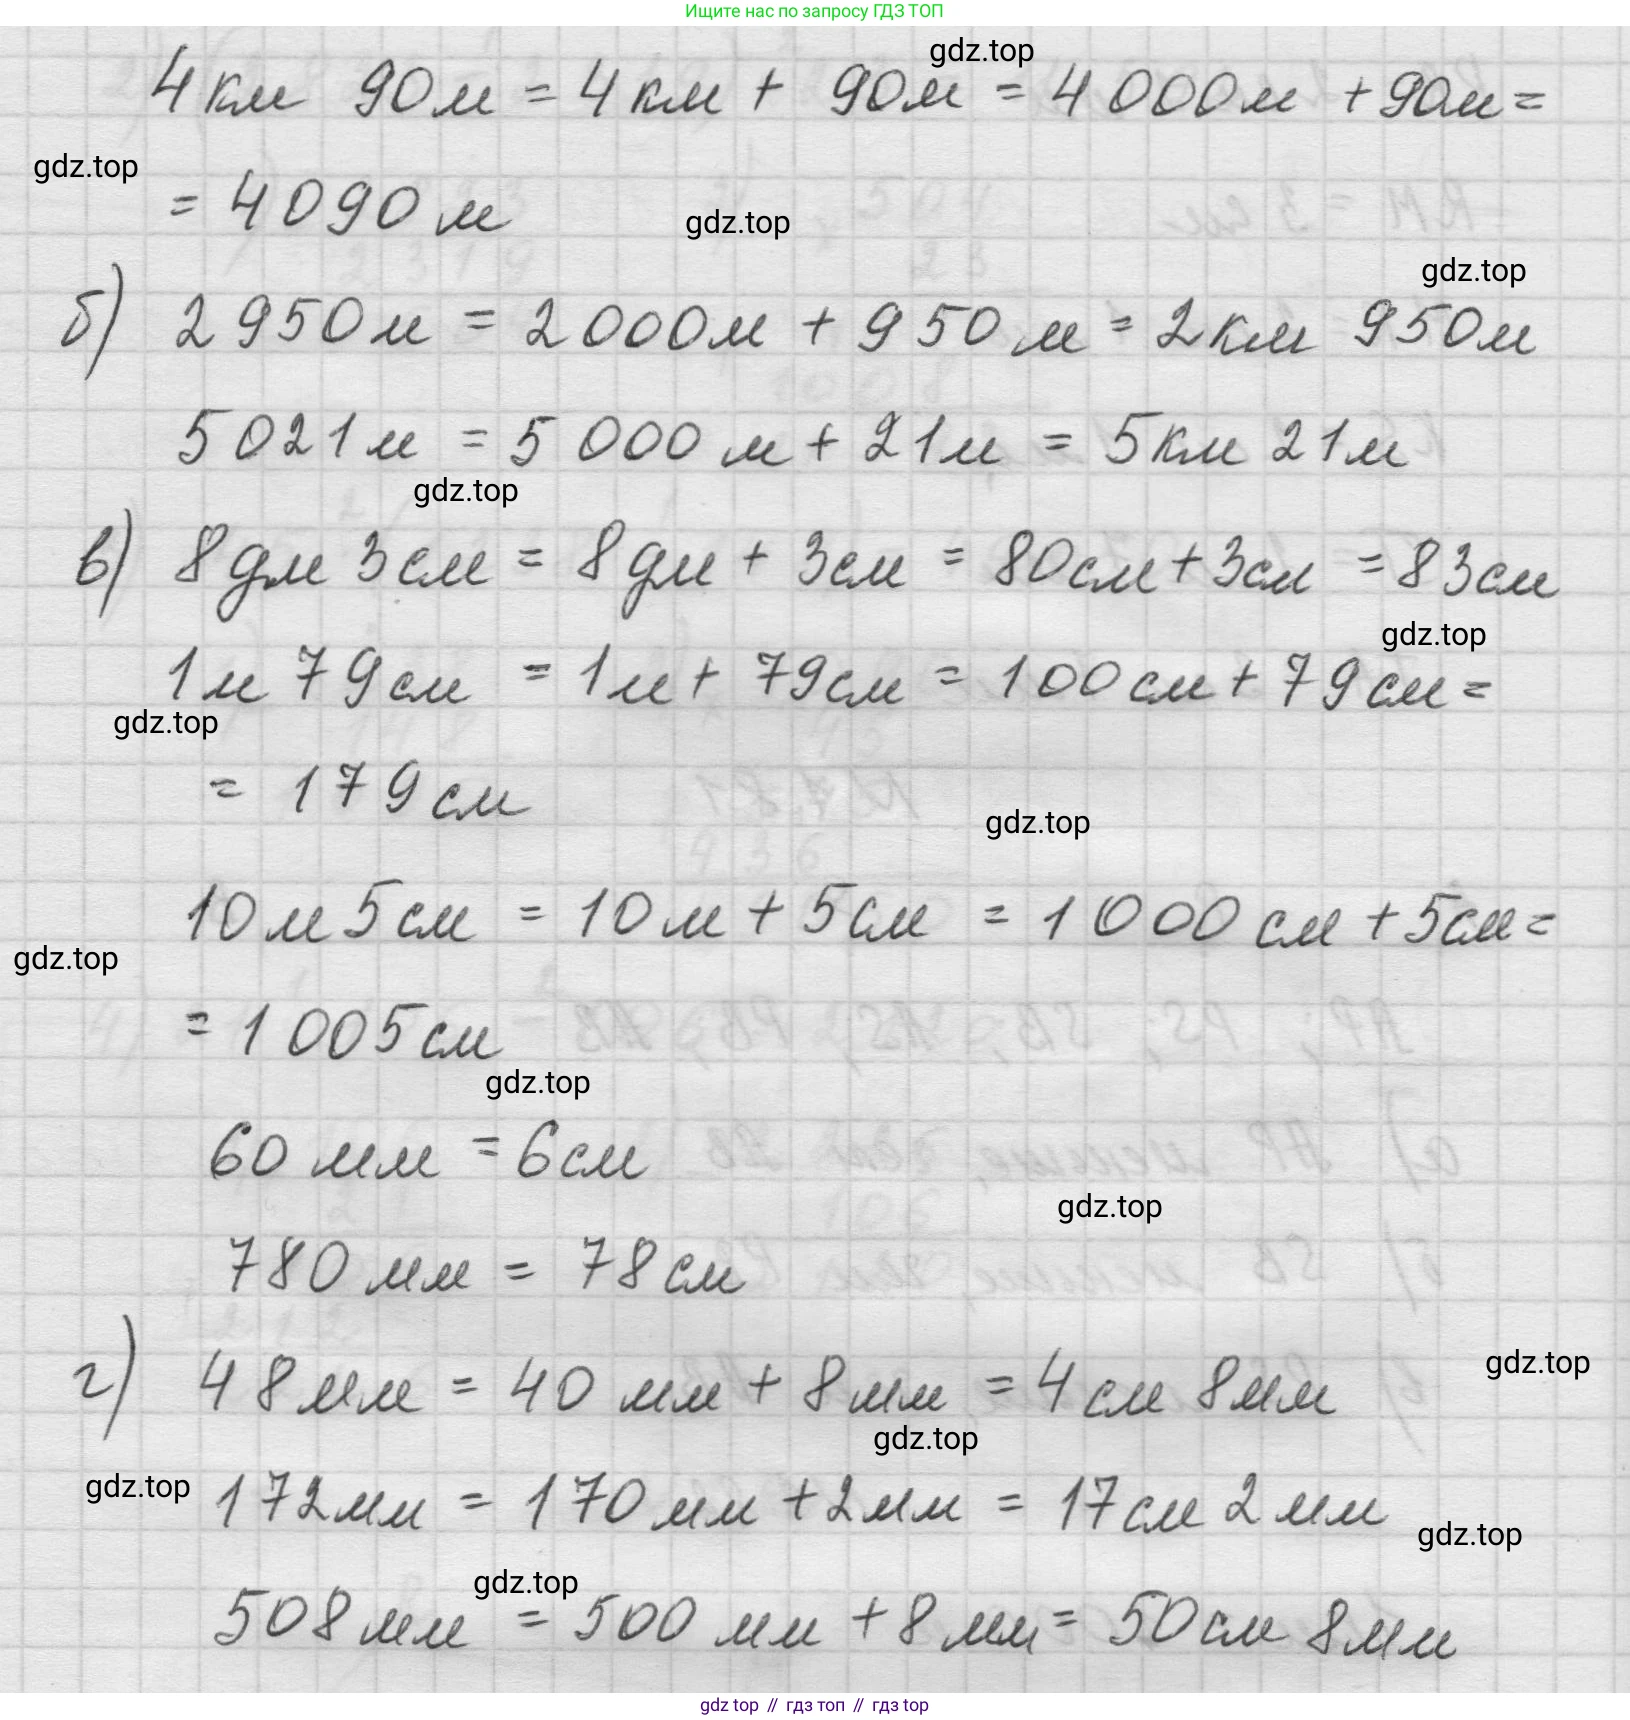 Ищите нас по запросу ГДЗ ТОП
gdz.top
4 км 90 м = 4 км + 90 м = 4 000 м + 90 м =
gdz.top
= 4 090 м
gdz.top
gdz.top
б) 2 950 м = 2 000 м + 950 м = 2 км 950 м
5 021 м = 5 000 м + 21 м = 5 км 21 м
gdz.top
в) 8 дм 3 см = 8 дм + 3 см = 80 см + 3 см = 83 см
gdz.top
1 м 79 см = 1 м + 79 см = 100 см + 79 см =
gdz.top
= 179 см
gdz.top
10 м 5 см = 10 м + 5 см = 1 000 см + 5 см =
gdz.top
= 1 005 см
gdz.top
60 мм = 6 см
gdz.top
780 мм = 78 см
gdz.top
г) 48 мм = 40 мм + 8 мм = 4 см 8 мм
gdz.top
gdz.top
172 мм = 170 мм + 2 мм = 17 см 2 мм
gdz.top
gdz.top
508 мм = 500 мм + 8 мм = 50 см 8 мм
gdz top // гдз топ // гдз top